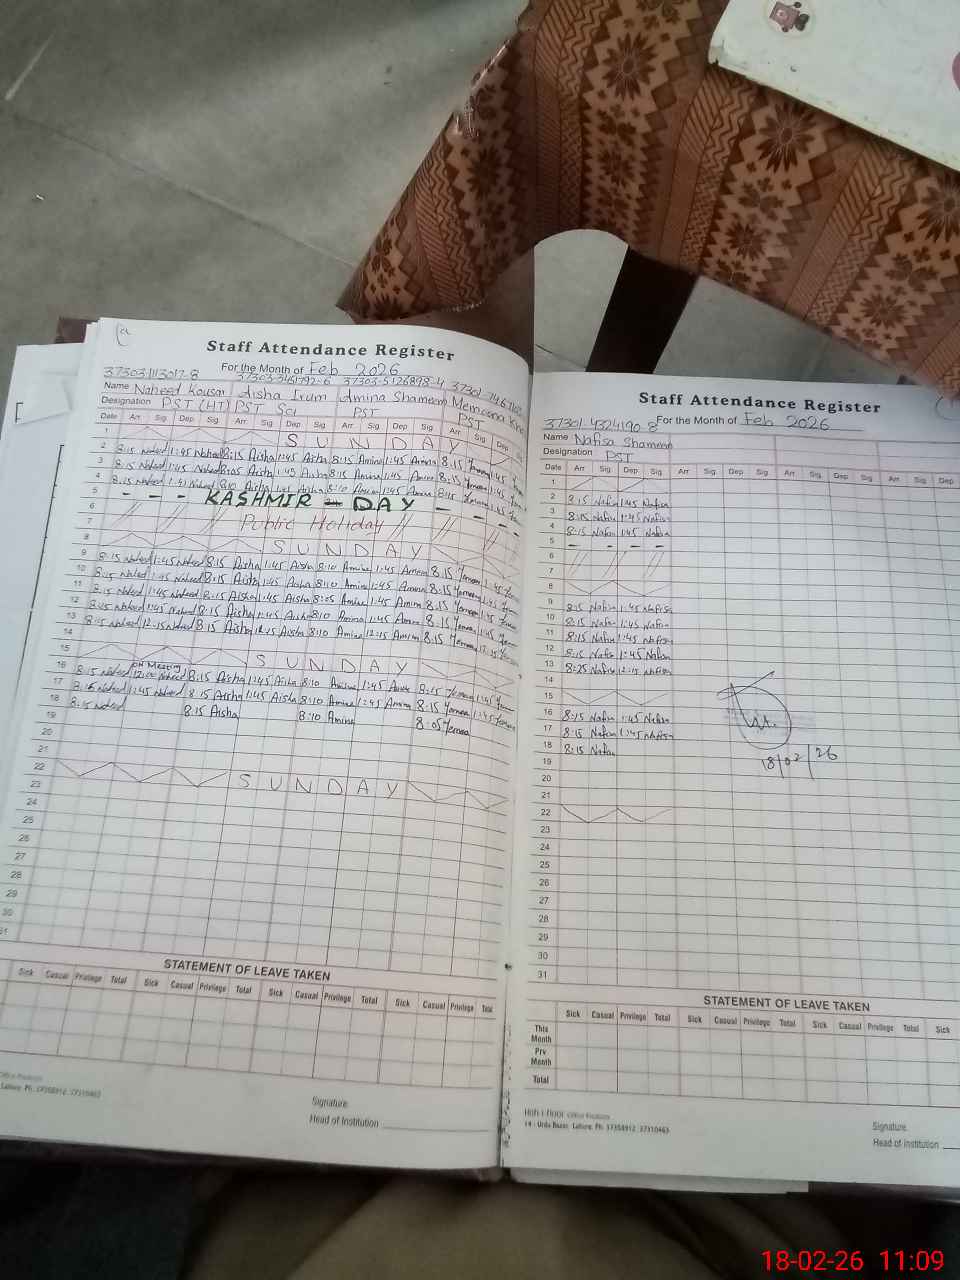 Staff Attendance Register
For the Month of Feb 2026
37303-1113017-8 37303-3461792-6 37303-5126898-4
Name Naheed Kousar Aisha Irum Amina Shameem Memoona
Designation PST (HT) PST Sci PST PST
Date Arr Sig Dep Sig Arr Sig Dep Sig Arr Sig Dep Sig Arr Sig Dep
1 SUNDAY
2 8:15 Naheed 1:45 Naheed 8:15 Aisha 1:45 Aisha 8:15 Amina 1:45 Amina 8:15
3 8:15 Naheed 1:45 Naheed 8:05 Aisha 1:45 Aisha 8:15 Amina 1:45 Amina 8:15
4 8:15 Naheed 1:45 Naheed 8:10 Aisha 1:45 Aisha 8:10 Amina 1:45 Amina 8:15
5 - - - KASHMIR - DAY - - -
6 Public Holiday
7
8 SUNDAY
9 8:15 Naheed 1:45 Naheed 8:15 Aisha 1:45 Aisha 8:10 Amina 1:45 Amina 8:15
10 8:15 Naheed 1:45 Naheed 8:15 Aisha 1:45 Aisha 8:10 Amina 1:45 Amina 8:15
11 8:15 Naheed 1:45 Naheed 8:15 Aisha 1:45 Aisha 8:05 Amina 1:45 Amina 8:15
12 Naheed 1:45 Naheed 8:15 Aisha 1:45 Aisha 8:10 Amina 1:45 Amina 8:15
13 8:15 Naheed 12:15 Naheed 8:15 Aisha 12:15 Aisha 8:10 Amina 12:15 Amina 8:15
14
15 SUNDAY
on Meeting
16 8:15 Naheed 12:00 Naheed 8:15 Aisha 1:45 Aisha 8:10 Amina 1:45 8:15
17 8:15 Naheed 1:45 Naheed 8:15 Aisha 1:45 Aisha 8:10 Amina 1:45 Amina 8:15
18 8:15 Naheed 8:15 Aisha 8:10 Amina 8:05
19
20
21
22 SUNDAY
23
24
25
26
27
28
29
30
31
STATEMENT OF LEAVE TAKEN
Sick Casual Privilege Total Sick Casual Privilege Total Sick Casual Privilege Total Sick Casual Privilege Total
Office Products
Lahore. Ph: 37358912, 37310463
Signature
Head of Institution
Staff Attendance Register
37301-4324190-8 For the Month of Feb 2026
Name Nafisa Shameem
Designation PST
Date Arr Sig Dep Sig Arr Sig Dep Sig Arr Sig Dep Sig Arr Sig Dep
1
2 8:15 Nafisa 1:45 Nafisa
3 8:15 Nafisa 1:45 Nafisa
4 8:15 Nafisa 1:45 Nafisa
5 - - - -
6
7
8
9 8:15 Nafisa 1:45 Nafisa
10 8:15 Nafisa 1:45 Nafisa
11 8:15 Nafisa 1:45 Nafisa
12 8:15 Nafisa 1:45 Nafisa
13 8:25 Nafisa 12:15 Nafisa
14
15
16 8:15 Nafisa 1:45 Nafisa
17 8:15 Nafisa 1:45 Nafisa
18 8:15 Nafisa
18/02/26
19
20
21
22
23
24
25
26
27
28
29
30
31
STATEMENT OF LEAVE TAKEN
Sick Casual Privilege Total Sick Casual Privilege Total Sick Casual Privilege Total Sick
This Month
Prv Month
Total
Office Products
14 - Urdu Bazar, Lahore. Ph: 37358912, 37310463
Signature
Head of Institution
18-02-26 11:09